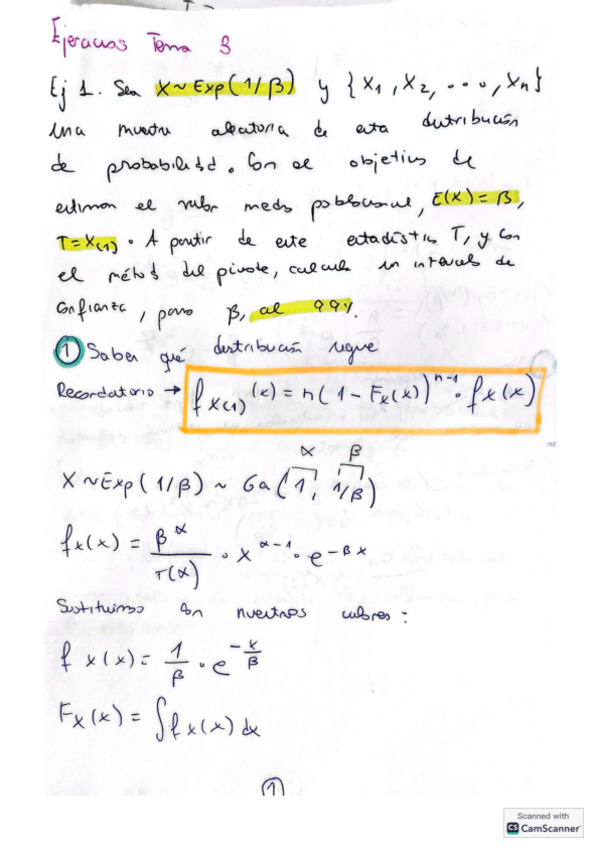 Ejercicios Tema 3
Ej 1. Sea X~Exp(1/β) y {X1, X2, ..., Xn}
una muestra aleatoria de esta distribución
de probabilidad. Con el objetivo de
estimar el valor medio poblacional, E(X) = β,
T = X(1). A partir de este estadístico T, y con
el método del pivote, calcula un intervalo de
confianza, para β, al 99%.
① Saber qué distribución sigue
Recordatorio → f X(1) (x) = n(1 - Fx(x))^n-1 · fx(x)
α β
X~Exp(1/β) ~ Ga(1, 1/β)
fx(x) = β^α / Γ(α) · x^α-1 · e^-βx
Sustituimos con nuestros valores:
f x(x) = 1/β · e^-x/β
Fx(x) = ∫fx(x) dx
①
Scanned with
CS CamScanner